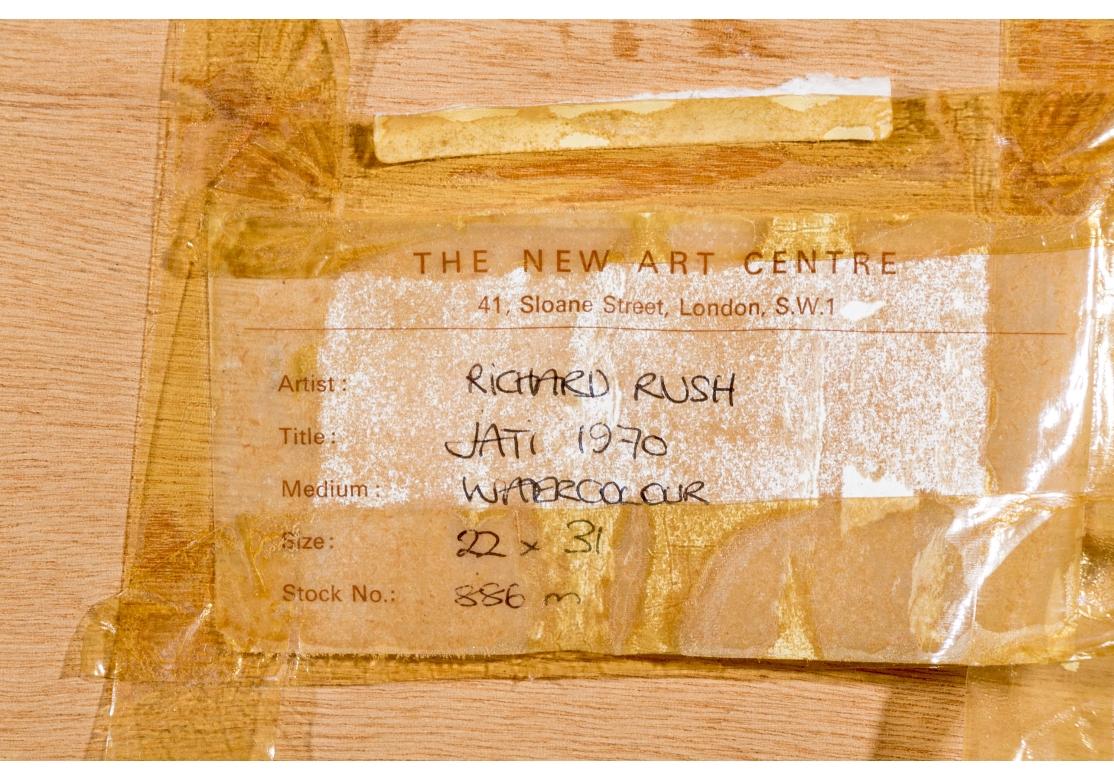 THE NEW ART CENTRE
41, Sloane Street, London, S.W.1
Artist: RICHARD RUSH
Title: JATI 1970
Medium: WATERCOLOUR
Size: 22 x 31
Stock No.: 886 m